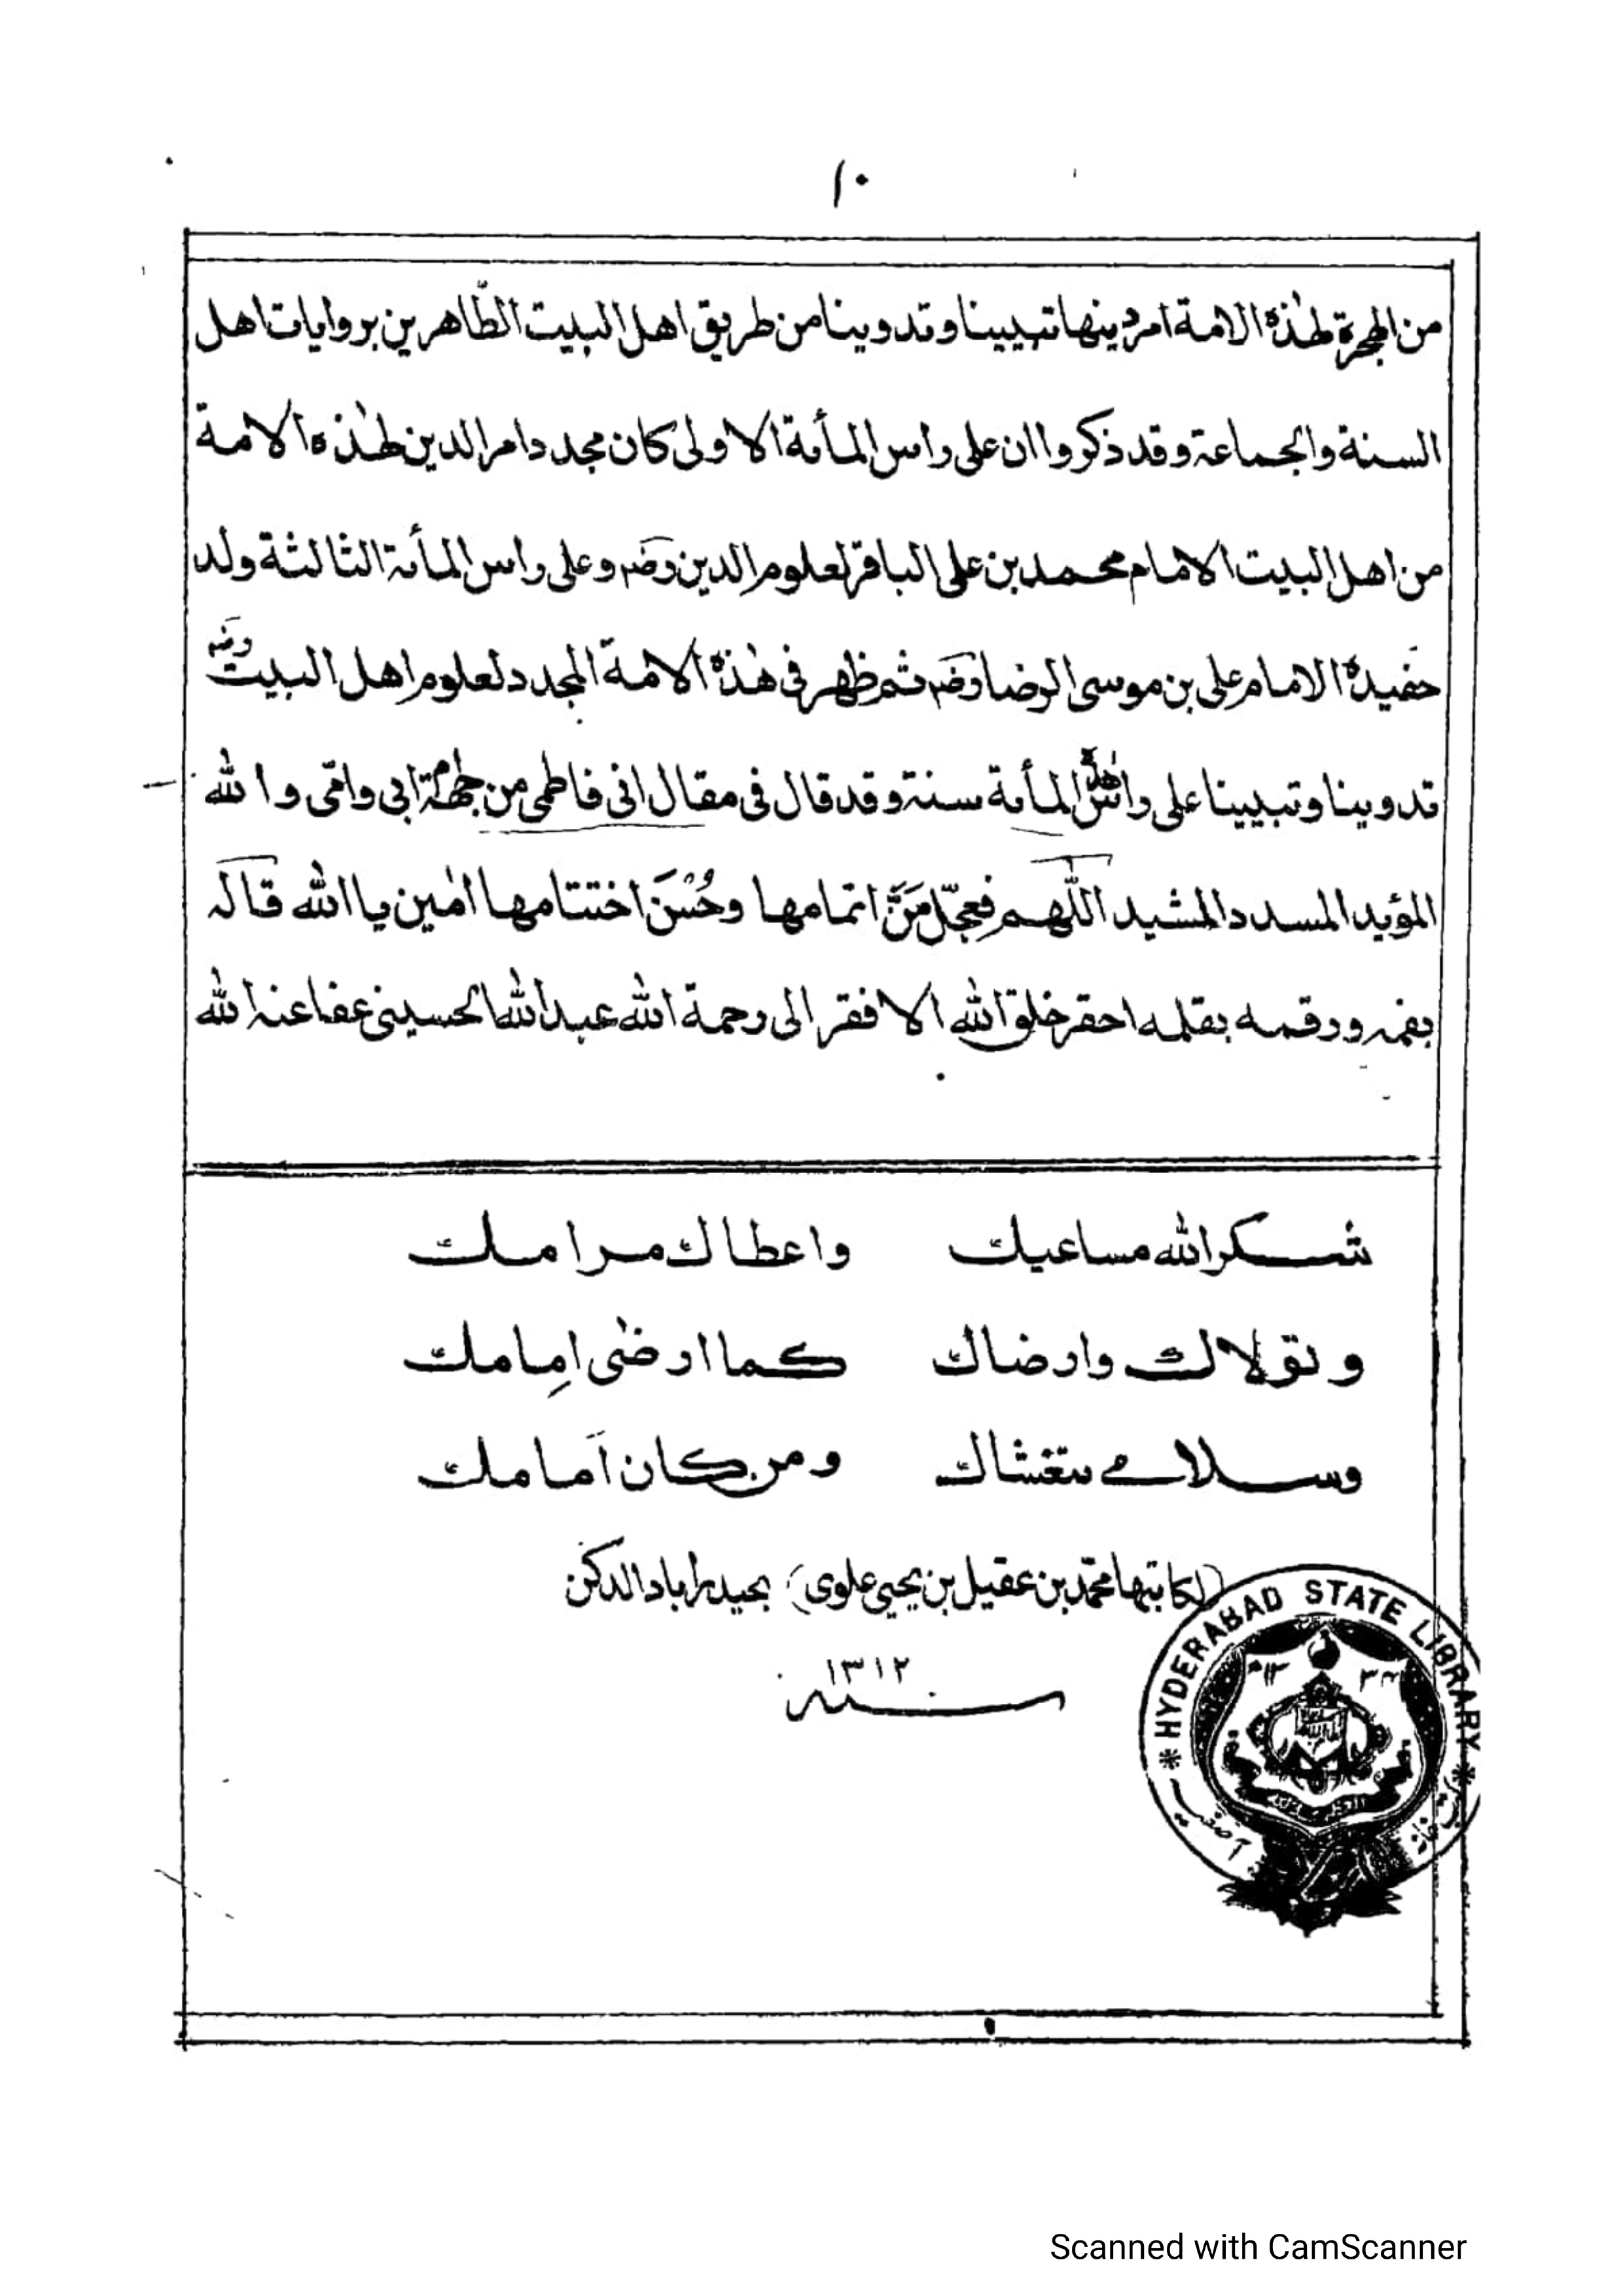 ١٠
من الهجرة لهٰذه الامة امر دينها تبيينا وتدوينا من طريق اهل البيت الطّاهرين بروايات اهل
السنة والجماعة وقد ذكروا ان على راس المأة الاولى كان مجدد امر الدين لهٰذه الامة
من اهل البيت الامام محمد بن على الباقر لعلوم الدين رضه وعلى راس المأة الثالثة ولد
حفيده الامام على بن موسى الرضا رضه ثم ظهر فى هٰذه الامة المجدد لعلوم اهل البيت رضه
تدوينا وتبيينا على راس هذه المأة سنة وقد قال فى مقال انى فاطمى من جهة ابى وامّى والله
المؤيد المسدد المشيد اللّٰهم فعجّل مَنَّ اتمامها وحُسْنَ اختتامها امٰين يا الله قاله
بفمه ورقمه بقلمه احقر خلق الله الافقر الى رحمة الله عبد الله الحسينى عفا عنه الله
شكر الله مساعيك واعطاك مرامك
وتولاك وارضاك كما ارضٰى اِمامك
وسلامى يتغشاك ومن كان اَمامك
(لكاتبها محمّد بن عقيل بن يحيى علوى) بحيدراباد الدكن
سنة ١٣١٢
HYDERABAD STATE LIBRARY
آصفيه
Scanned with CamScanner